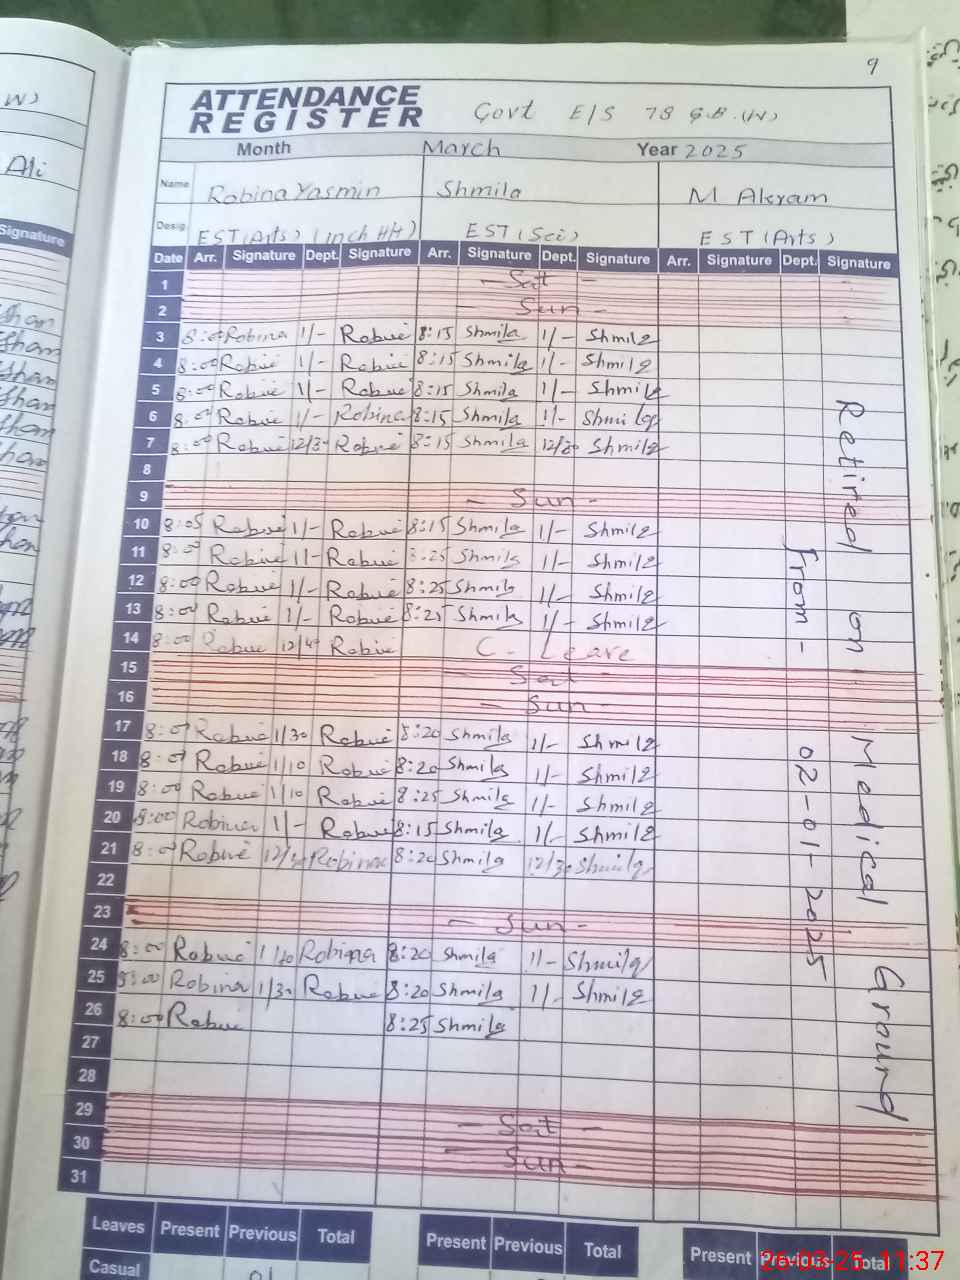 9
ATTENDANCE REGISTER Govt E/S 78 G.B.(W)
Month March Year 2025
Name Robina Yasmin Shmila M Akram
Desig EST(Arts) (inch HH) EST(Sci) EST(Arts)
Date Arr. Signature Dept. Signature Arr. Signature Dept. Signature Arr. Signature Dept. Signature
1 - Sat -
2 - Sun -
3 8:00 Robina 1/- Robine 8:15 Shmila 1/- Shmila
4 8:00 Robine 1/- Robine 8:15 Shmila 1/- Shmila
5 8:00 Robine 1/- Robine 8:15 Shmila 1/- Shmila
6 8:00 Robine 1/- Robina 8:15 Shmila 1/- Shmila
7 8:00 Robine 12/30 Robine 8:15 Shmila 12/30 Shmila
8
9 - Sun -
10 8:05 Robine 1/- Robine 8:15 Shmila 1/- Shmila
11 8:00 Robine 1/- Robine 8:25 Shmila 1/- Shmila
12 8:00 Robine 1/- Robine 8:25 Shmila 1/- Shmila
13 8:00 Robine 1/- Robine 8:25 Shmila 1/- Shmila
14 8:00 Robine Robine C. Leave
15 - Sat -
16 - Sun -
17 8:00 Robine 1/30 Robine 8:20 Shmila 1/- Shmila
18 8:00 Robine 1/10 Robine 8:20 Shmila 1/- Shmila
19 8:00 Robine 1/10 Robine 8:25 Shmila 1/- Shmila
20 8:00 Robina 1/- Robine 8:15 Shmila 1/- Shmila
21 8:00 Robine 12/30 Robina 8:20 Shmila 12/30 Shmila
22
23 - Sun -
24 8:00 Robine Robina 8:20 Shmila 1/- Shmila
25 8:00 Robina 1/30 Robine 8:20 Shmila 1/- Shmila
26 8:00 Robine 8:25 Shmila
27
28
29 - Sat -
30 - Sun -
31
Retired on Medical Ground
from - 02-01-2025
Leaves Present Previous Total Present Previous Total Present Previous Total
Casual 01
Ali
Signature
26-03-25 11:37